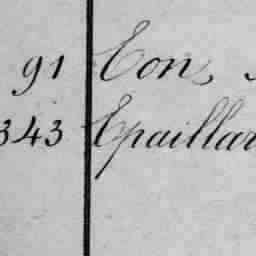 91 Eon,
343 Epaillar